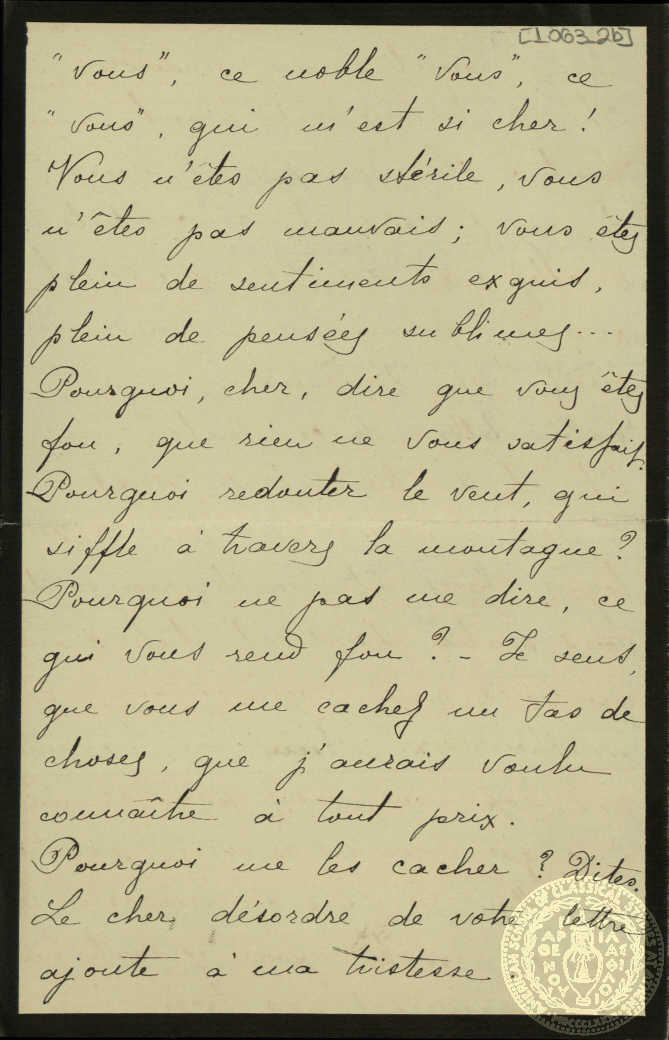 [1063_2b]
"vous", ce noble "vous", ce
"vous", qui m'est si cher!
Vous n'êtes pas stérile, vous
n'êtes pas mauvais; vous êtes
plein de sentiments exquis,
plein de pensées sublimes...
Pourquoi, cher, dire que vous êtes
fou, que rien ne vous satisfait.
Pourquoi redouter le vent, qui
siffle à travers la montagne?
Pourquoi ne pas me dire, ce
qui vous rend fou? - Je sens,
que vous me cachez un tas de
choses, que j'aurais voulu
connaître à tout prix.
Pourquoi me les cacher? Dites.
Le cher désordre de votre lettre
ajoute à ma tristesse.